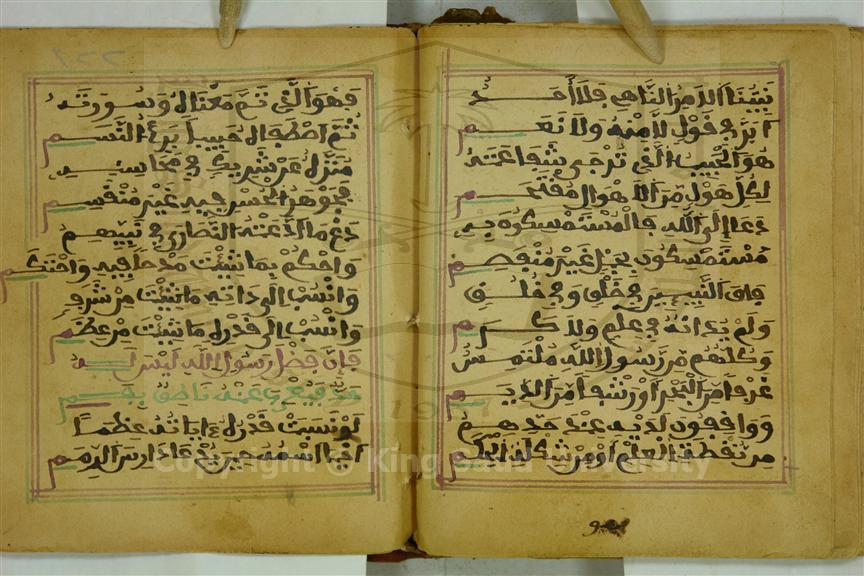 نَبِيُّنَا الآمِرُ النَّاهِي فَلَا أَحَدٌ
أَبَرَّ فِي قَوْلِ لَا مِنْهُ وَلَا نَعَمِ
هُوَ الْحَبِيبُ الَّذِي تُرْجَى شَفَاعَتُهُ
لِكُلِّ هَوْلٍ مِنَ الْأَهْوَالِ مُقْتَحَمِ
دَعَا إِلَى اللَّهِ فَالْمُسْتَمْسِكُونَ بِهِ
مُسْتَمْسِكُونَ بِحَبْلٍ غَيْرِ مُنْفَصِمِ
فَاقَ النَّبِيِّينَ فِي خَلْقٍ وَفِي خُلُقٍ
وَلَمْ يُدَانُوهُ فِي عِلْمٍ وَلَا كَرَمِ
وَكُلُّهُمْ مِنْ رَسُولِ اللَّهِ مُلْتَمِسٌ
غَرْفًا مِنَ الْبَحْرِ أَوْ رَشْفًا مِنَ الدِّيَمِ
وَوَاقِفُونَ لَدَيْهِ عِنْدَ حَدِّهِمُ
مِنْ نُقْطَةِ الْعِلْمِ أَوْ مِنْ شَكْلَةِ الْحِكَمِ
فَهُوَ الَّذِي تَمَّ مَعْنَاهُ وَصُورَتُهُ
ثُمَّ اصْطَفَاهُ حَبِيبًا بَارِئُ النَّسَمِ
مُنَزَّهٌ عَنْ شَرِيكٍ فِي مَحَاسِنِهِ
فَجَوْهَرُ الْحُسْنِ فِيهِ غَيْرُ مُنْقَسِمِ
دَعْ مَا ادَّعَتْهُ النَّصَارَى فِي نَبِيِّهِمُ
وَاحْكُمْ بِمَا شِئْتَ مَدْحًا فِيهِ وَاحْتَكِمِ
وَانْسُبْ إِلَى ذَاتِهِ مَا شِئْتَ مِنْ شَرَفٍ
وَانْسُبْ إِلَى قَدْرِهِ مَا شِئْتَ مِنْ عِظَمِ
فَإِنَّ فَضْلَ رَسُولِ اللَّهِ لَيْسَ لَهُ
حَدٌّ فَيُعْرِبَ عَنْهُ نَاطِقٌ بِفَمِ
لَوْ نَاسَبَتْ قَدْرَهُ آيَاتُهُ عِظَمًا
أَحْيَا اسْمُهُ حِينَ يُدْعَى دَارِسَ الرِّمَمِ
Copyright © King Saud University